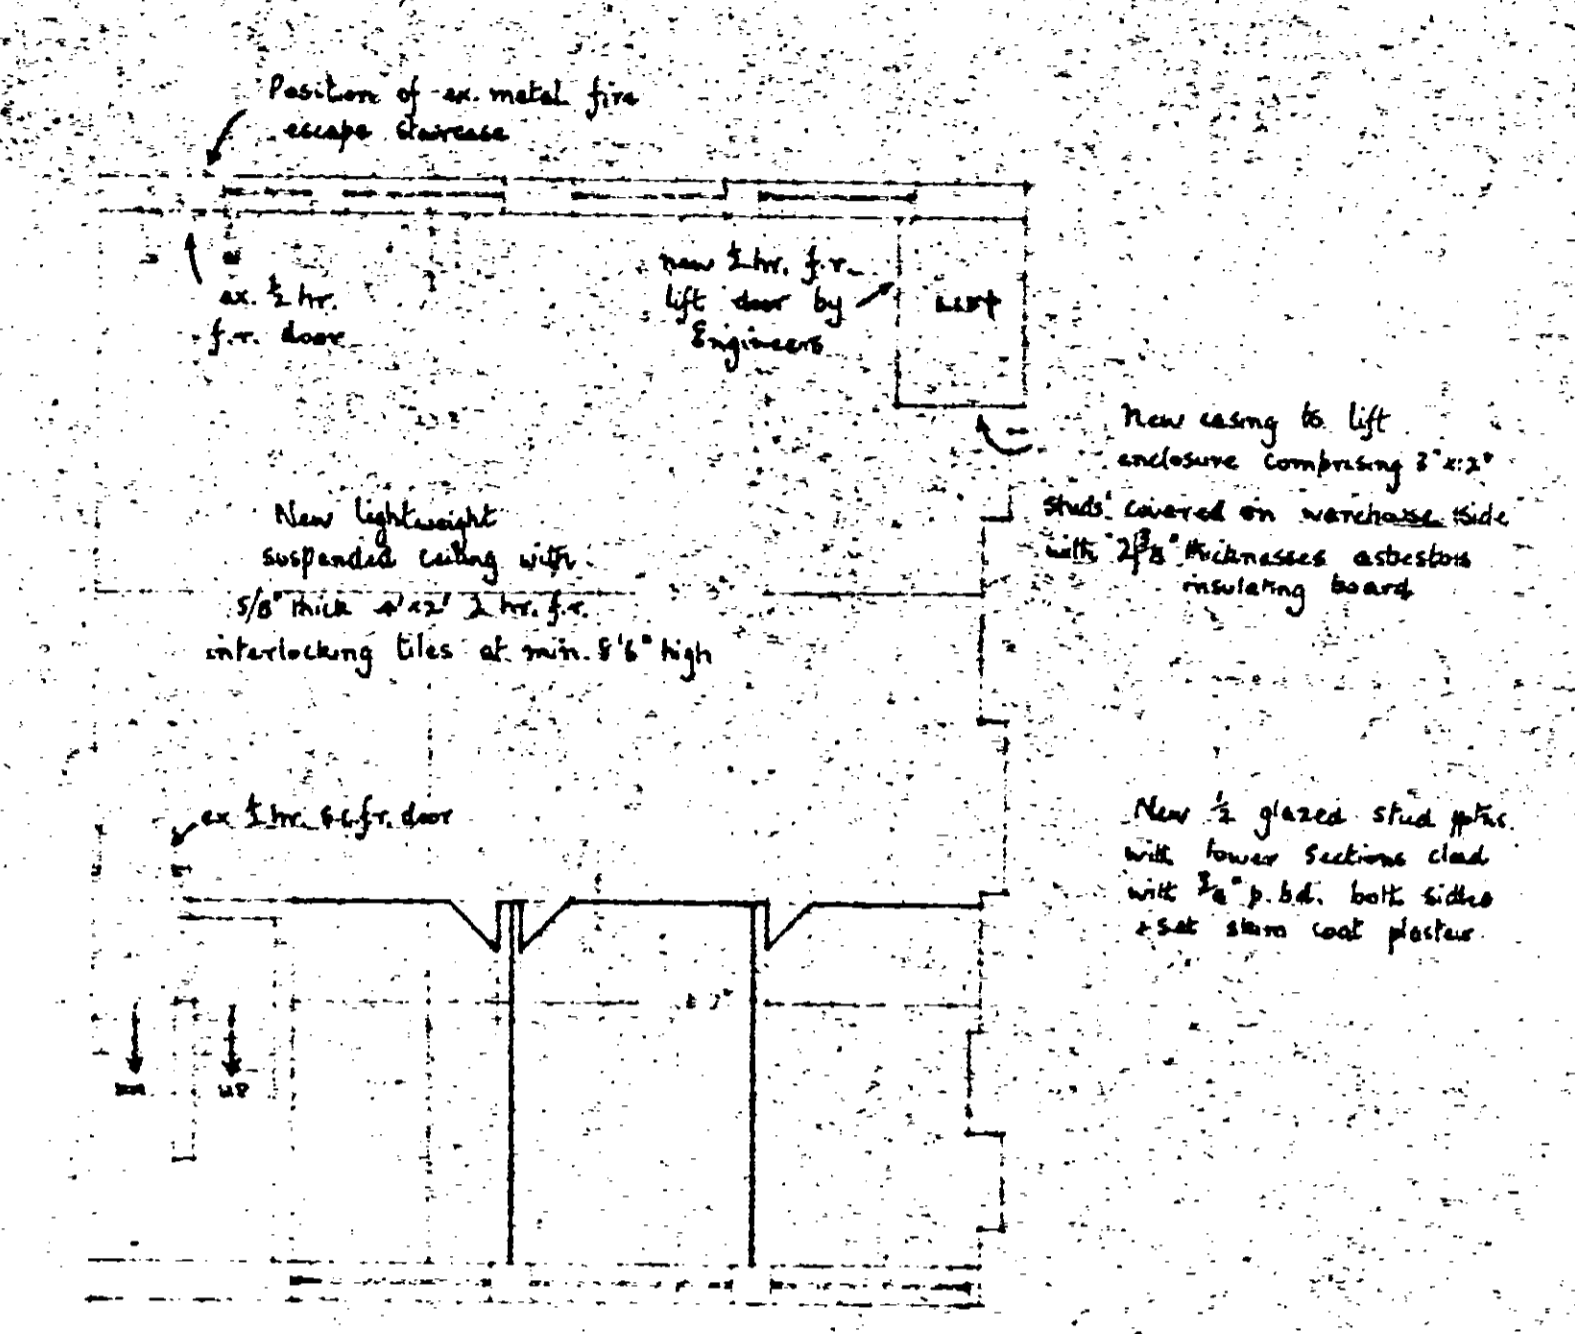 Position of ex. metal fire
escape staircase
ex. ½ hr.
f.r. door
new ½ hr. f.r.
lift door by
Engineers
LIFT
New casing to lift
enclosure comprising 3"x2"
studs covered on warehouse side
with 2/⅜" thicknesses asbestos
insulating board
New lightweight
suspended ceiling with
5/8" thick 4'x2' ½ hr. f.r.
interlocking tiles at min. 8'6" high
ex ½ hr. f.r. door
New ½ glazed stud ptns.
with lower sections clad
with p. bd. both sides
+ set skim coat plaster
DN
UP